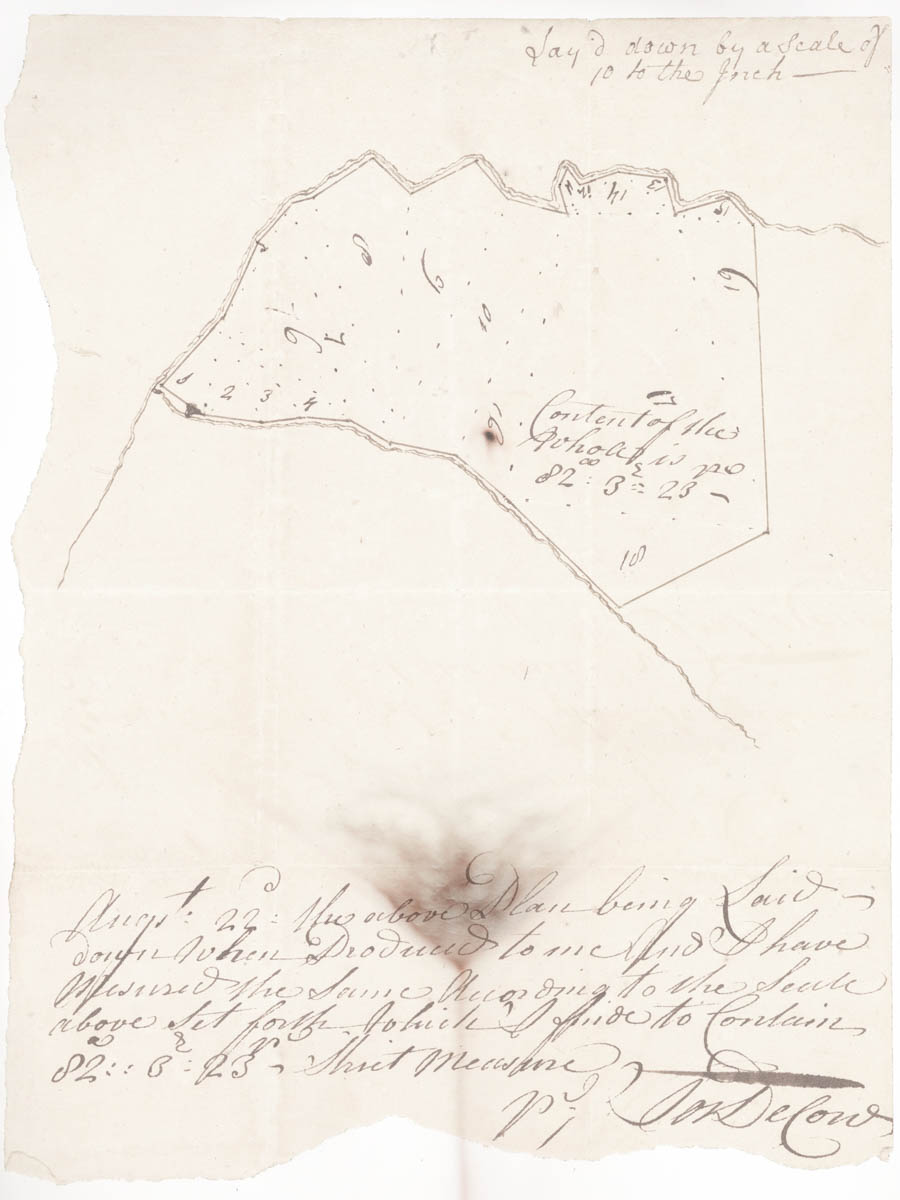 Lay'd down by a Scale of
10 to the Inch
1
2
3
4
5
6
7
8
9
10
11
12
13
14
15
16
18
19
Content of the
Whole is
82:a 3:r 23
Augst: 22d: the above Plan being Laid
down When Produced to me And I have
Mesured the Same According to the Scale
above Set forth Which I finde to Contain
82a:: 3r: 23p Strict Measure
Pr
Jos DeCow